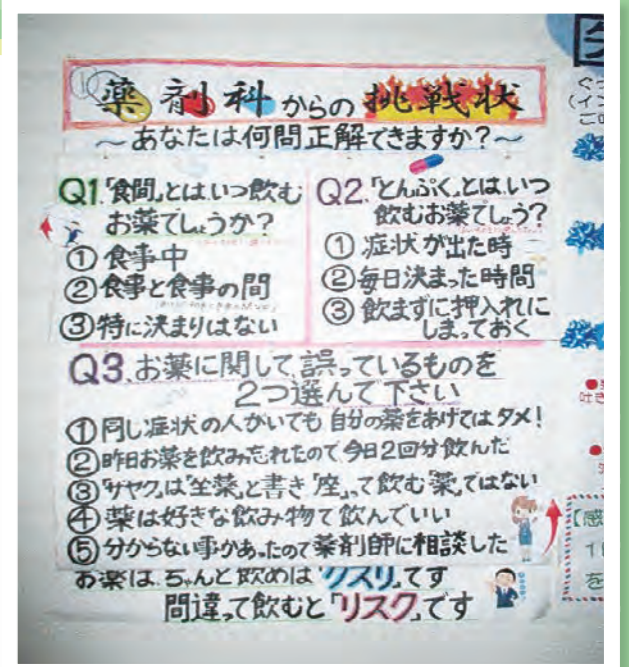 薬剤科からの挑戦状
～あなたは何問正解できますか？～
Q1.「食間」とはいつ飲む
お薬でしょうか？
①食事中
②食事と食事の間
③特に決まりはない
Q2.「とんぷく」とはいつ
飲むお薬でしょう？
①症状が出た時
②毎日決まった時間
③飲まずに押入れに
しまっておく
Q3.お薬に関して、誤っているものを
2つ選んで下さい
①同じ症状の人がいても自分の薬をあげてはダメ！
②昨日お薬を飲み忘れたので今日2回分飲んだ
③「ザヤク」は「坐薬」と書き「座」って飲む「薬」ではない
④薬は好きな飲み物で飲んでいい
⑤分からない事があったので薬剤師に相談した
お薬は、ちゃんと飲めば「クスリ」です
間違って飲むと「リスク」です